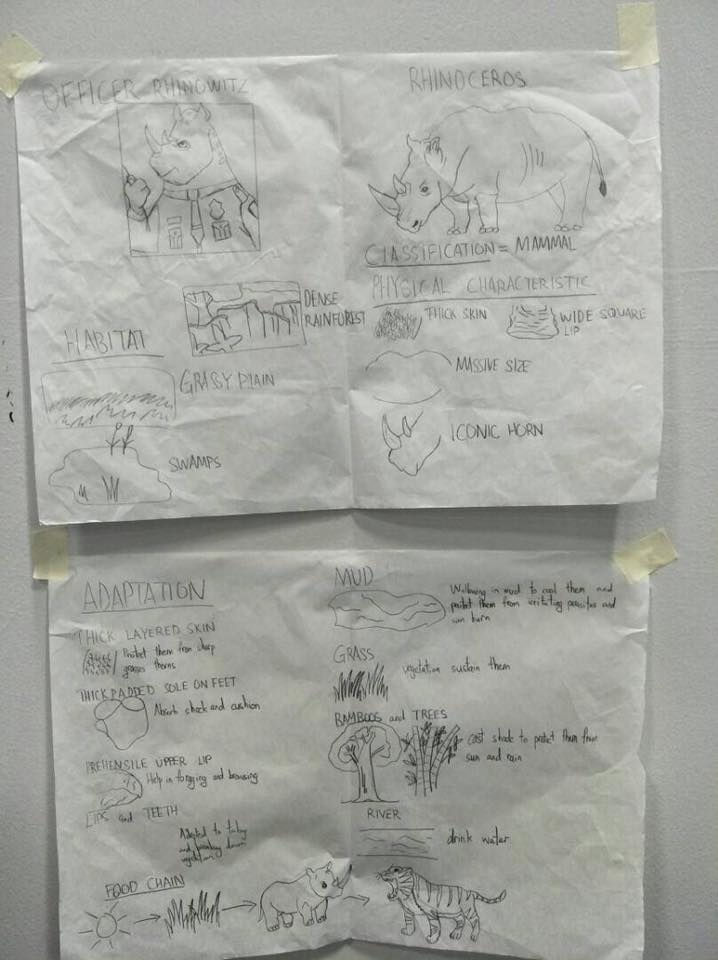 OFFICER RHINOWITZ
RHINOCEROS
CLASSIFICATION = MAMMAL
PHYSICAL CHARACTERISTIC
THICK SKIN
WIDE SQUARE
LIP
MASSIVE SIZE
ICONIC HORN
DENSE
RAINFOREST
HABITAT
GRASSY PLAIN
SWAMPS
ADAPTATION
THICK LAYERED SKIN
Protect them from sharp
grasses thorns
THICK PADDED SOLE ON FEET
Absorb shock and cushion
PREHENSILE UPPER LIP
Help in foraging and browsing
LIPS and TEETH
Adapted to
and breaking down
vegetation
MUD
Wallowing in mud to cool them and
protect them from irritating parasites and
sun burn
GRASS
vegetation sustain them
BAMBOOS and TREES
Cast shade to protect them from
sun and rain
RIVER
drink water
FOOD CHAIN